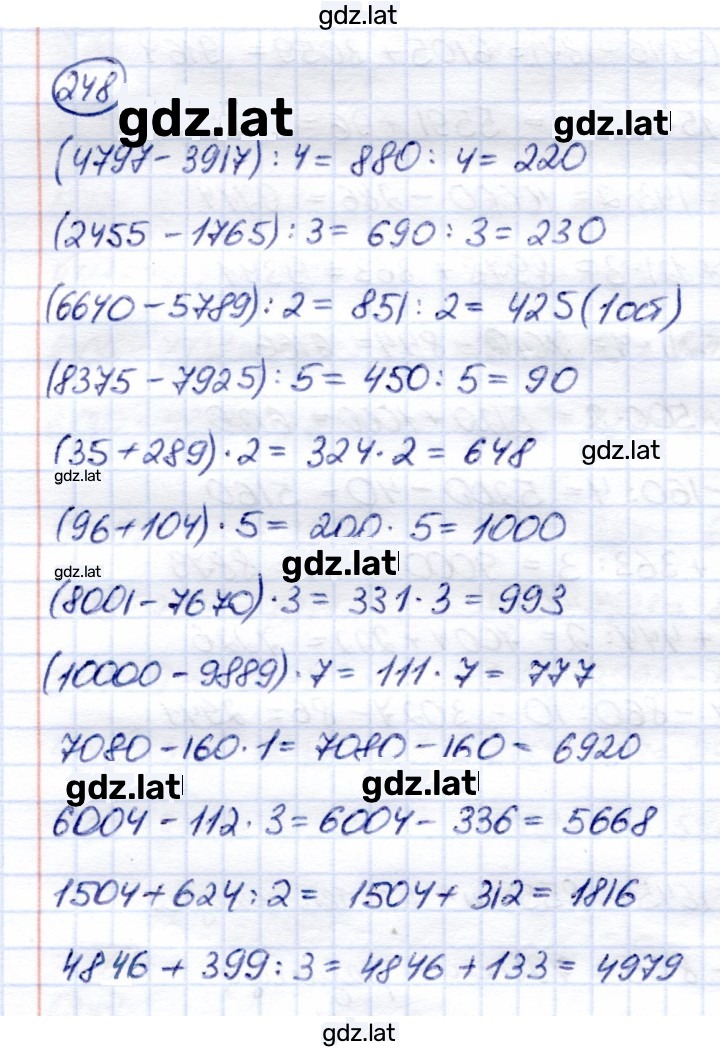 gdz.lat
248
gdz.lat gdz.lat
(4797 - 3917) : 4 = 880 : 4 = 220
(2455 - 1765) : 3 = 690 : 3 = 230
(6640 - 5789) : 2 = 851 : 2 = 425 (1 ост)
(8375 - 7925) : 5 = 450 : 5 = 90
(35 + 289) · 2 = 324 · 2 = 648 gdz.lat
gdz.lat
(96 + 104) · 5 = 200 · 5 = 1000
gdz.lat gdz.lat
(8001 - 7670) · 3 = 331 · 3 = 993
(10000 - 9889) · 7 = 111 · 7 = 777
7080 - 160 · 1 = 7080 - 160 = 6920
gdz.lat gdz.lat
6004 - 112 · 3 = 6004 - 336 = 5668
1504 + 624 : 2 = 1504 + 312 = 1816
4846 + 399 : 3 = 4846 + 133 = 4979
gdz.lat